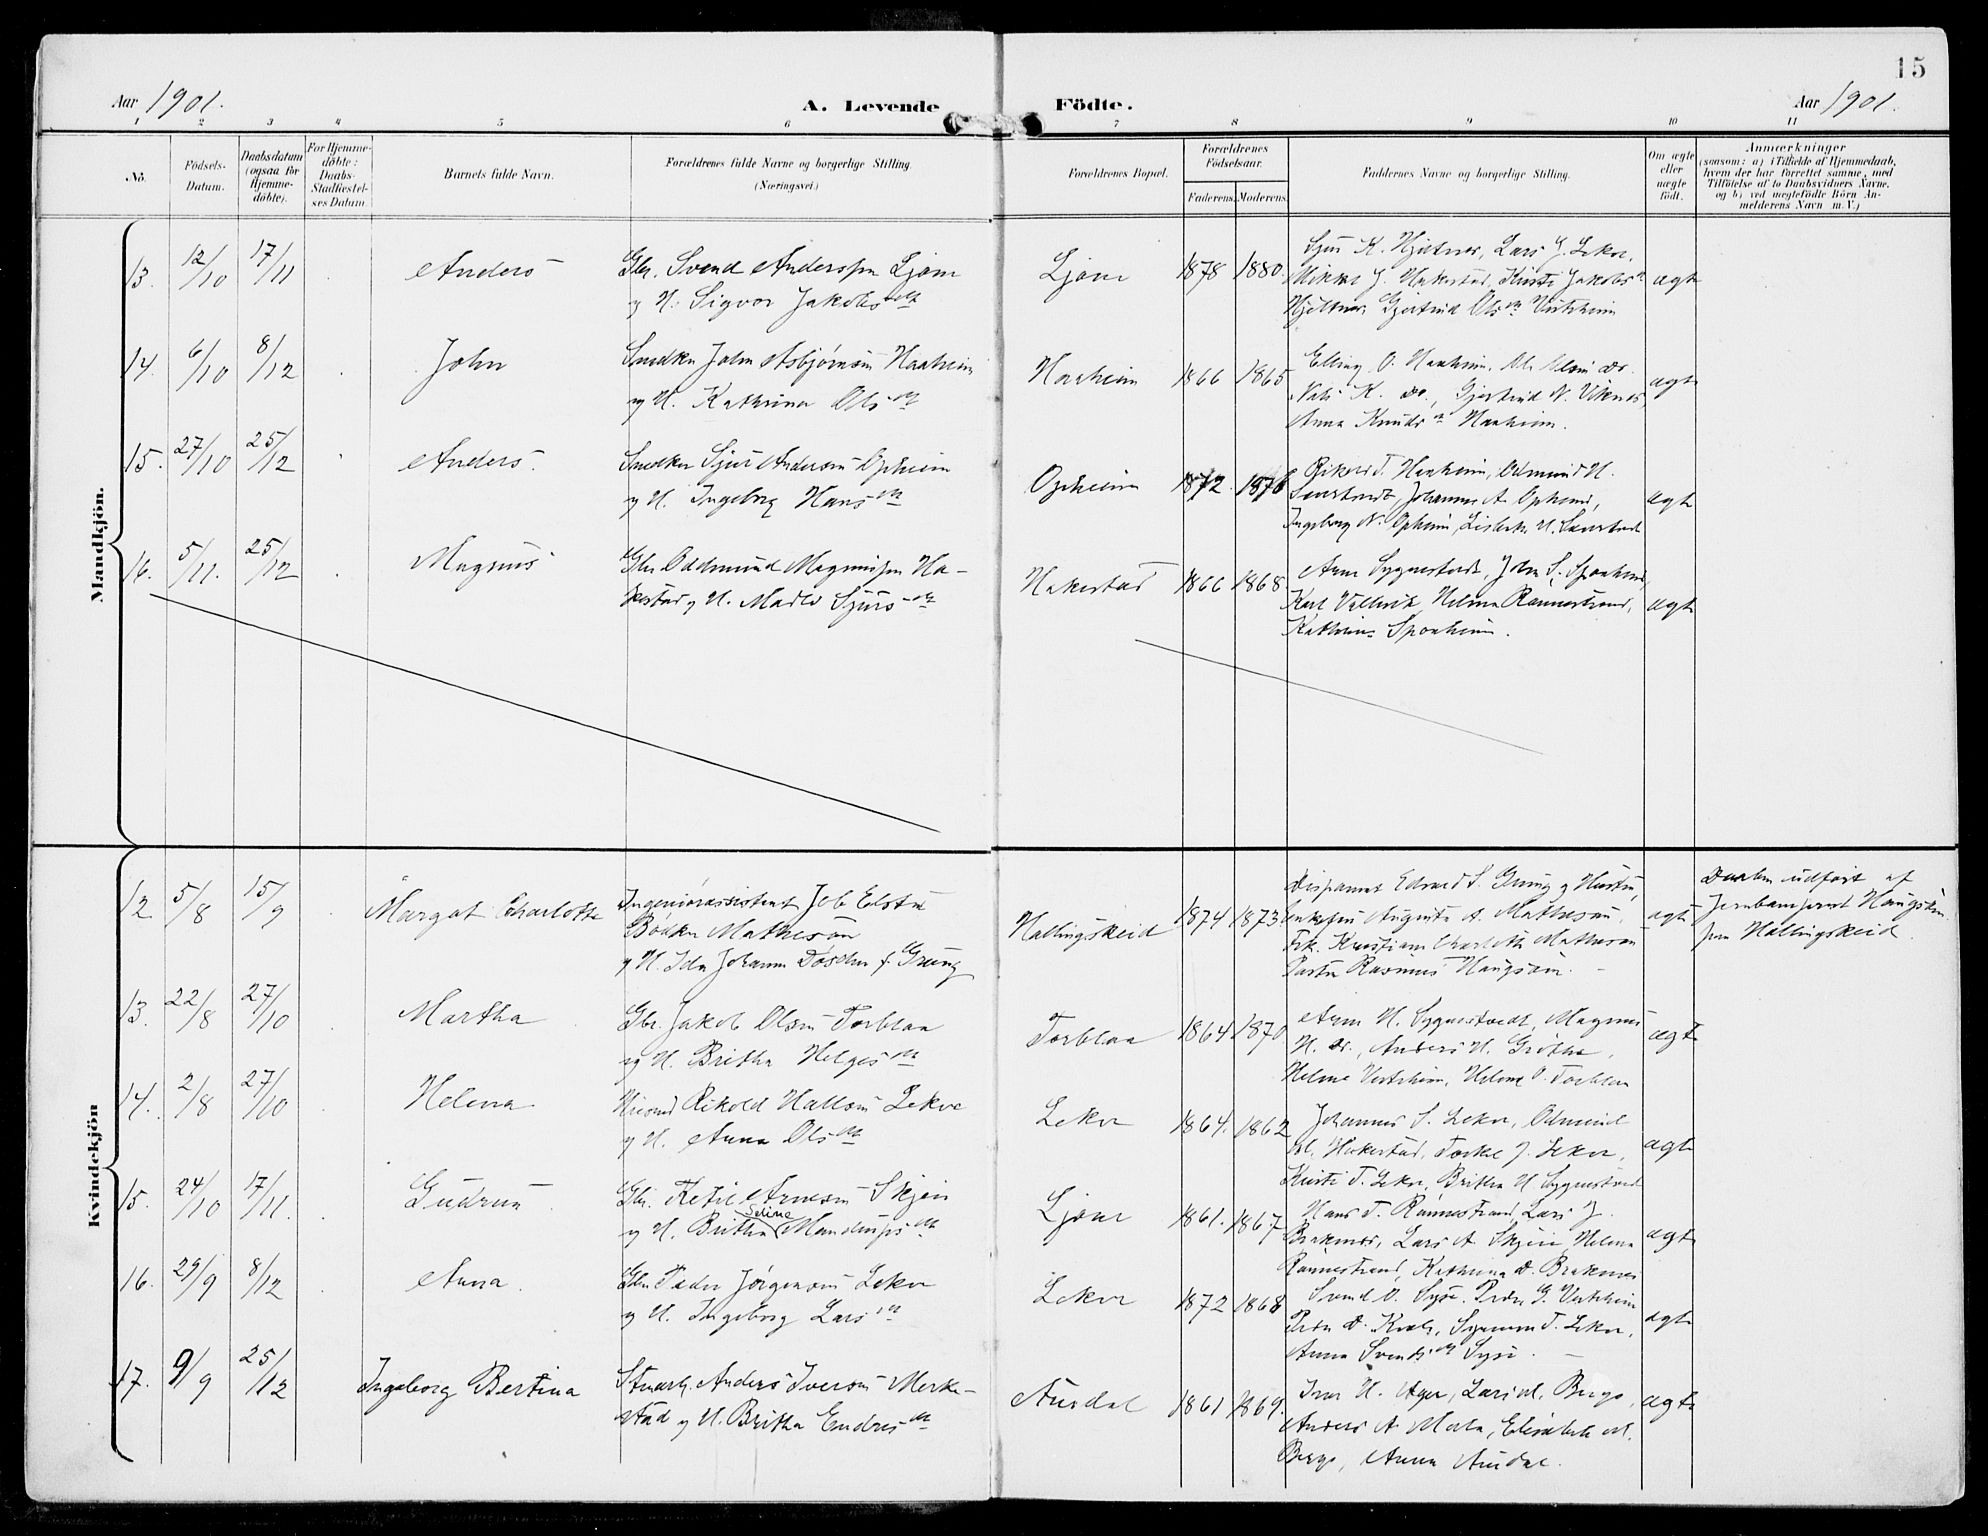 15
Aar 1901.
A. Levende Födte.
Aar 1901.
1 2 3 4 5 6 7 8 9 10 11
No.
Födsels-Datum.
Daabsdatum (ogsaa for Hjemme-döbte).
For Hjemme-döbte: Daabs-Stadfæstel-ses Datum
Barnets fulde Navn.
Forældrenes fulde Navne og borgerlige Stilling.
(Næringsvei.)
Forældrenes Bopæl.
Forældrenes Födselsaar.
Faderens. Moderens.
Faddernes Navne og borgerlige Stilling.
Om ægte eller uægte födt.
Anmærkninger
(saasom: a) i Tilfælde af Hjemmedaab, hvem der har forrettet samme, med Tilföielse af to Daabsvidners Navne, og b) ved uægtefödte Börn An-melderens Navn m. V.)
Mandkjön.
13. 12/10 17/11 Anders
Gbr. Svend Anderssen Ljone
g H. Sigvor Jakobsdtr
Ljone 1878 1880.
Sjur K. Hjeltnes, Lars J. Lekve,
Mikkel J. Hakestad, Kristi Jakobsdtr
Hjeltnes, Gjertrud Olsdtr Vestrheim
ægte
14. 6/10 8/12 John
Smedkr John Asbjørnsen Haaheim
g H. Kathrina Olsdtr
Haaheim 1866 1865
Elling O. Haaheim, Ole Olsen do.
Nils K. do., Gjertrud N. Viknes,
Anna Knudsdtr Haaheim.
ægte
15. 27/10 25/12 Anders.
Smedkr Sjur Andersen Opheim
g H. Ingeborg Hansdtr
Opheim 1872. 1876
Rikold T. Haaheim, Odmund H.
Johannes A. Opheim,
Ingeborg N. Opheim, Lisbeth H.
ægte
16. 5/11. 25/12 Magnus
Gbr Oddmund Magnussen Ha-
kestad g H. Madle Sjursdtr
Hakestad 1866 1868.
Arne Sygnestveit, John S. Sponheim,
Karl Vallevik, Helena Rønnestrand,
Kathrina Sponheim.
ægte
Kvindekjön
12 5/8 15/9 Margot Charlotte
Ingeniörassistent Jeb Elstu
Bödker Matheson
g H. Ida Johanne Döscher f. Grung
Hallingskeid 1874 1873
Disponent Edvard S. Grung g Hustru,
Augusta A. Matheson,
Frk. Kristiane Charlotte Matheson
Pastor Rasmus Haugsöen.
ægte
Daaben udfört af
Haugsöen
paa Hallingskeid.
13. 22/8 27/10 Martha
Gbr. Jakob Olsen Torblaa
g H. Britha Helgesdtr
Torblaa 1864 1870
Arne H. Sygnestveit, Magnus
H. do., Anders H. Grötha,
Helene Vestrheim, Helene O. Torblaa
ægte
14. 2/8 27/10 Helena
Husmd Rikold Hallsen Lekve
g H. Anna Olsdtr
Lekve 1864. 1862
Johannes S. Lekve, Odmund
M. Hakestad, Torkel J. Lekve,
Kristi T. Lekve, Britha H Sygnestveit
ægte
15. 24/10 17/11. Gudrun
Gbr. Ketil Arnesen Skjeie
Seline
g H. Britha Mandrupsdtr
Ljone 1861. 1867
Hans T. Rønnestrand, Lars J.
Braknes, Lars A. Skjeie, Helena
Rønnestrand, Kathrina D. Braknes
ægte
16. 29/9 8/12 Anna.
Gbr. Peder Jörgensen Lekve
g H. Ingeborg Larsdtr
Lekve 1872 1868
Svend O. Syse. Peder G. Vestrheim
Peder D. Kvale, T. Lekve,
Anna Svendsdtr Syse.
ægte
17. 9/9 25/12 Ingeborg Bertina
Anders Iversen Merke-
stad g H. Britha Endresdtr
Ausdal 1861 1869.
Iver H. Ager, Lars M. Berge,
Anders A. Mæla, Elisabeth M.
Berge, Anna Ausdal.
ægte